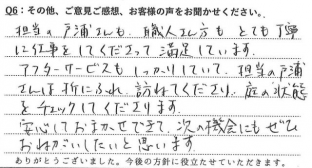 Q6：その他、ご意見ご感想、お客様の声をお聞かせください。
担当の戸浦さんも、職人さん方も とても丁寧
に仕事をしてくださって 満足しています。
アフターサービスも しっかりしていて、担当の戸浦
さんは折にふれ、訪れてくださり、庭の状態
をチェックしてくださります。
安心しておまかせできて、次の機会にもぜひ
おねがいしたいと思います
ありがとうございました。今後の方針に役立たせていただきます。